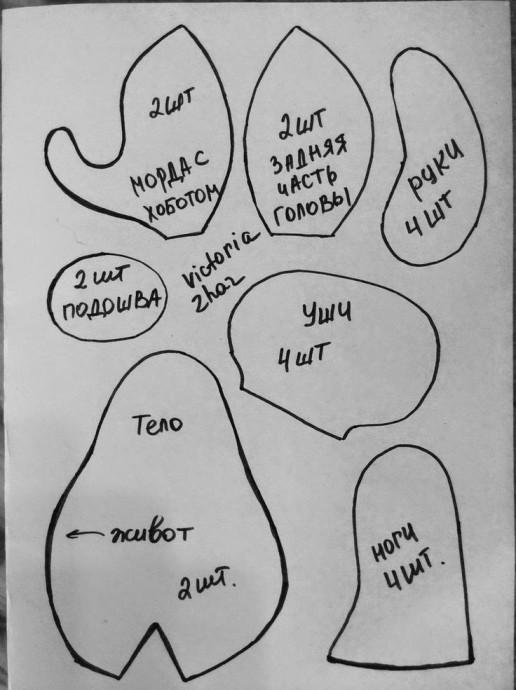 2шт
МОРДА С
ХОБОТОМ
2шт
ЗАДНЯЯ
ЧАСТЬ
ГОЛОВЫ
РУКИ
4шт
2шт
ПОДОШВА
victoria
zhaz
УШИ
4шт
Тело
живот
2шт.
НОГИ
4шт.